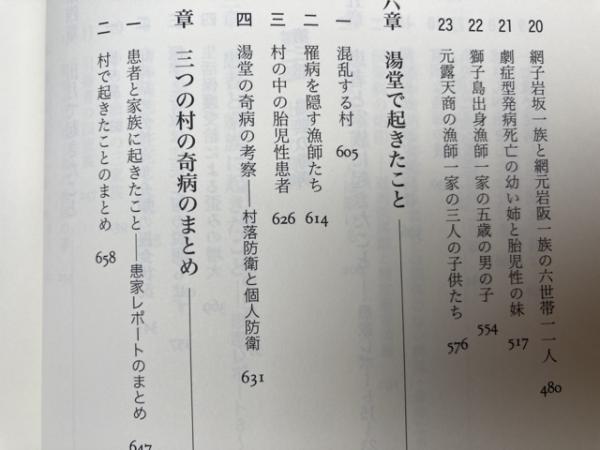 20 網子岩坂一族と網元岩阪一族の六世帯一一人 480
21 劇症型発病死亡の幼い姉と胎児性の妹 517
22 獅子島出身漁師一家の五歳の男の子 554
23 元露天商の漁師一家の三人の子供たち 576
六章 湯堂で起きたこと
一 混乱する村 605
二 罹病を隠す漁師たち 614
三 村の中の胎児性患者 626
四 湯堂の奇病の考察――村落防衛と個人防衛 631
章 三つの村の奇病のまとめ
一 患者と家族に起きたこと――患家レポートのまとめ 647
二 村で起きたことのまとめ 658